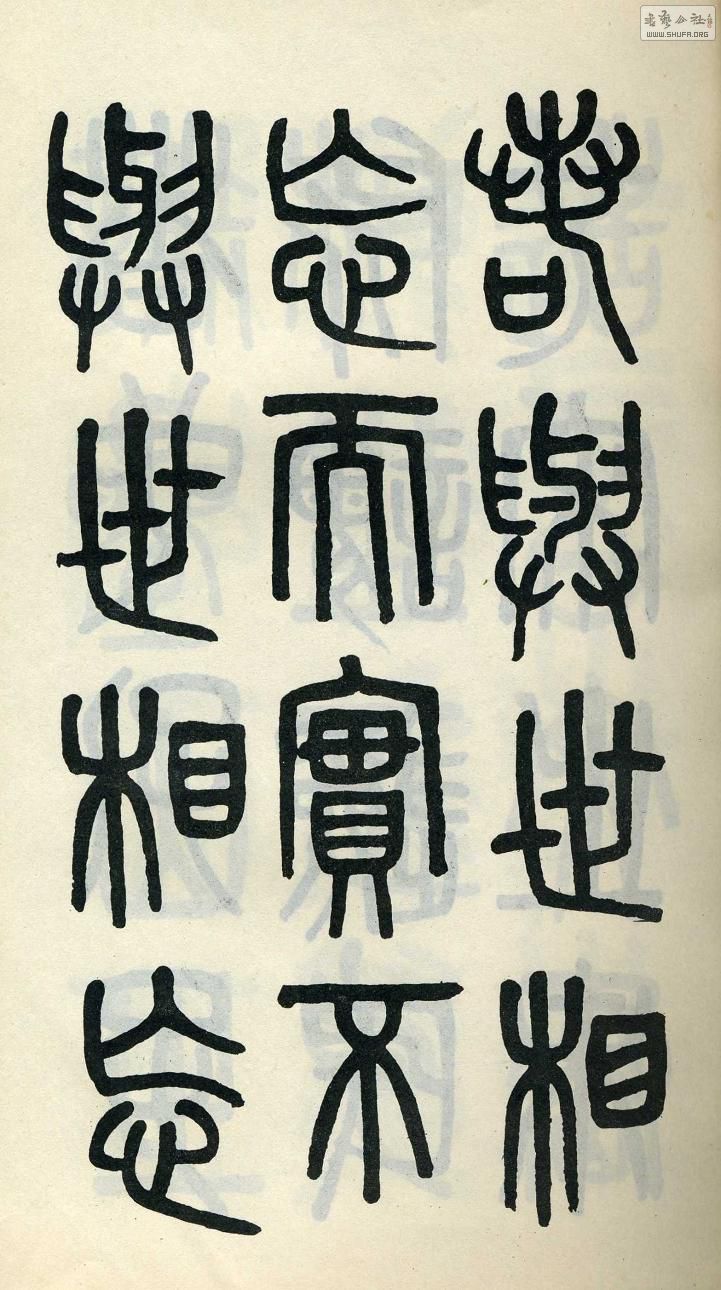 若與世相
忘而實不
與世相忘
書藝公社
WWW.SHUFA.ORG